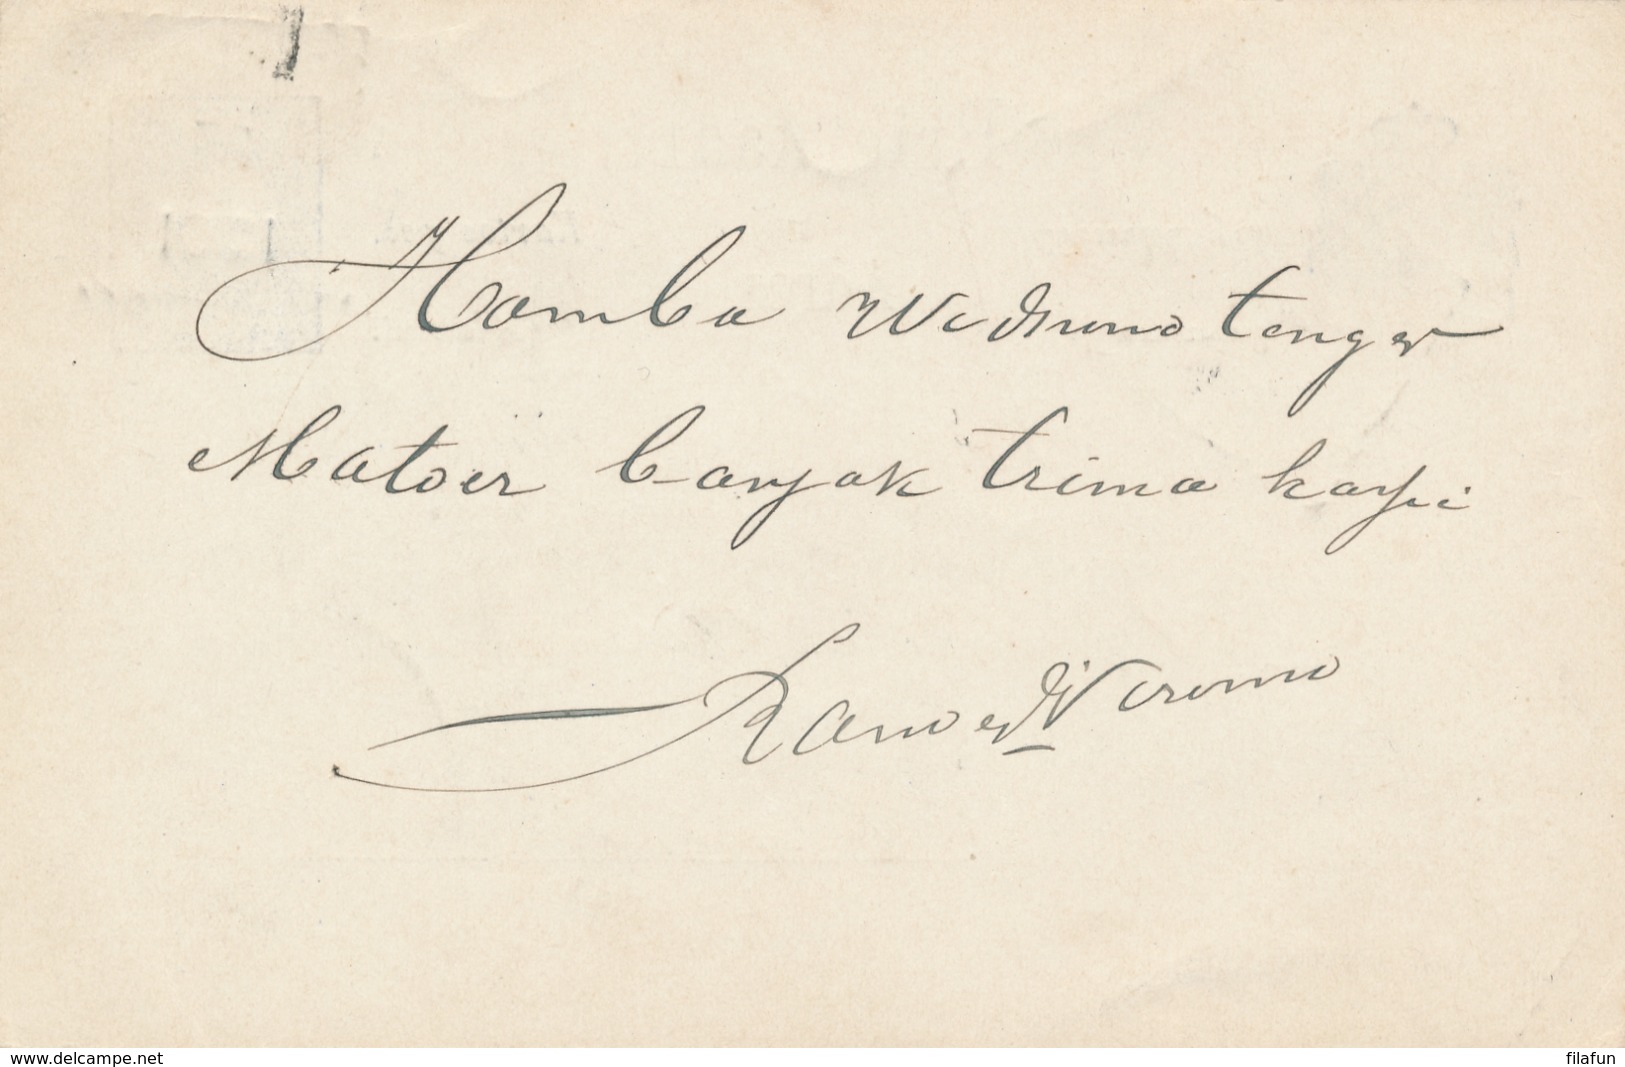 Hamba Wedhono tenger
Matoer banjak trima kassi
www.delcampe.net
filafun